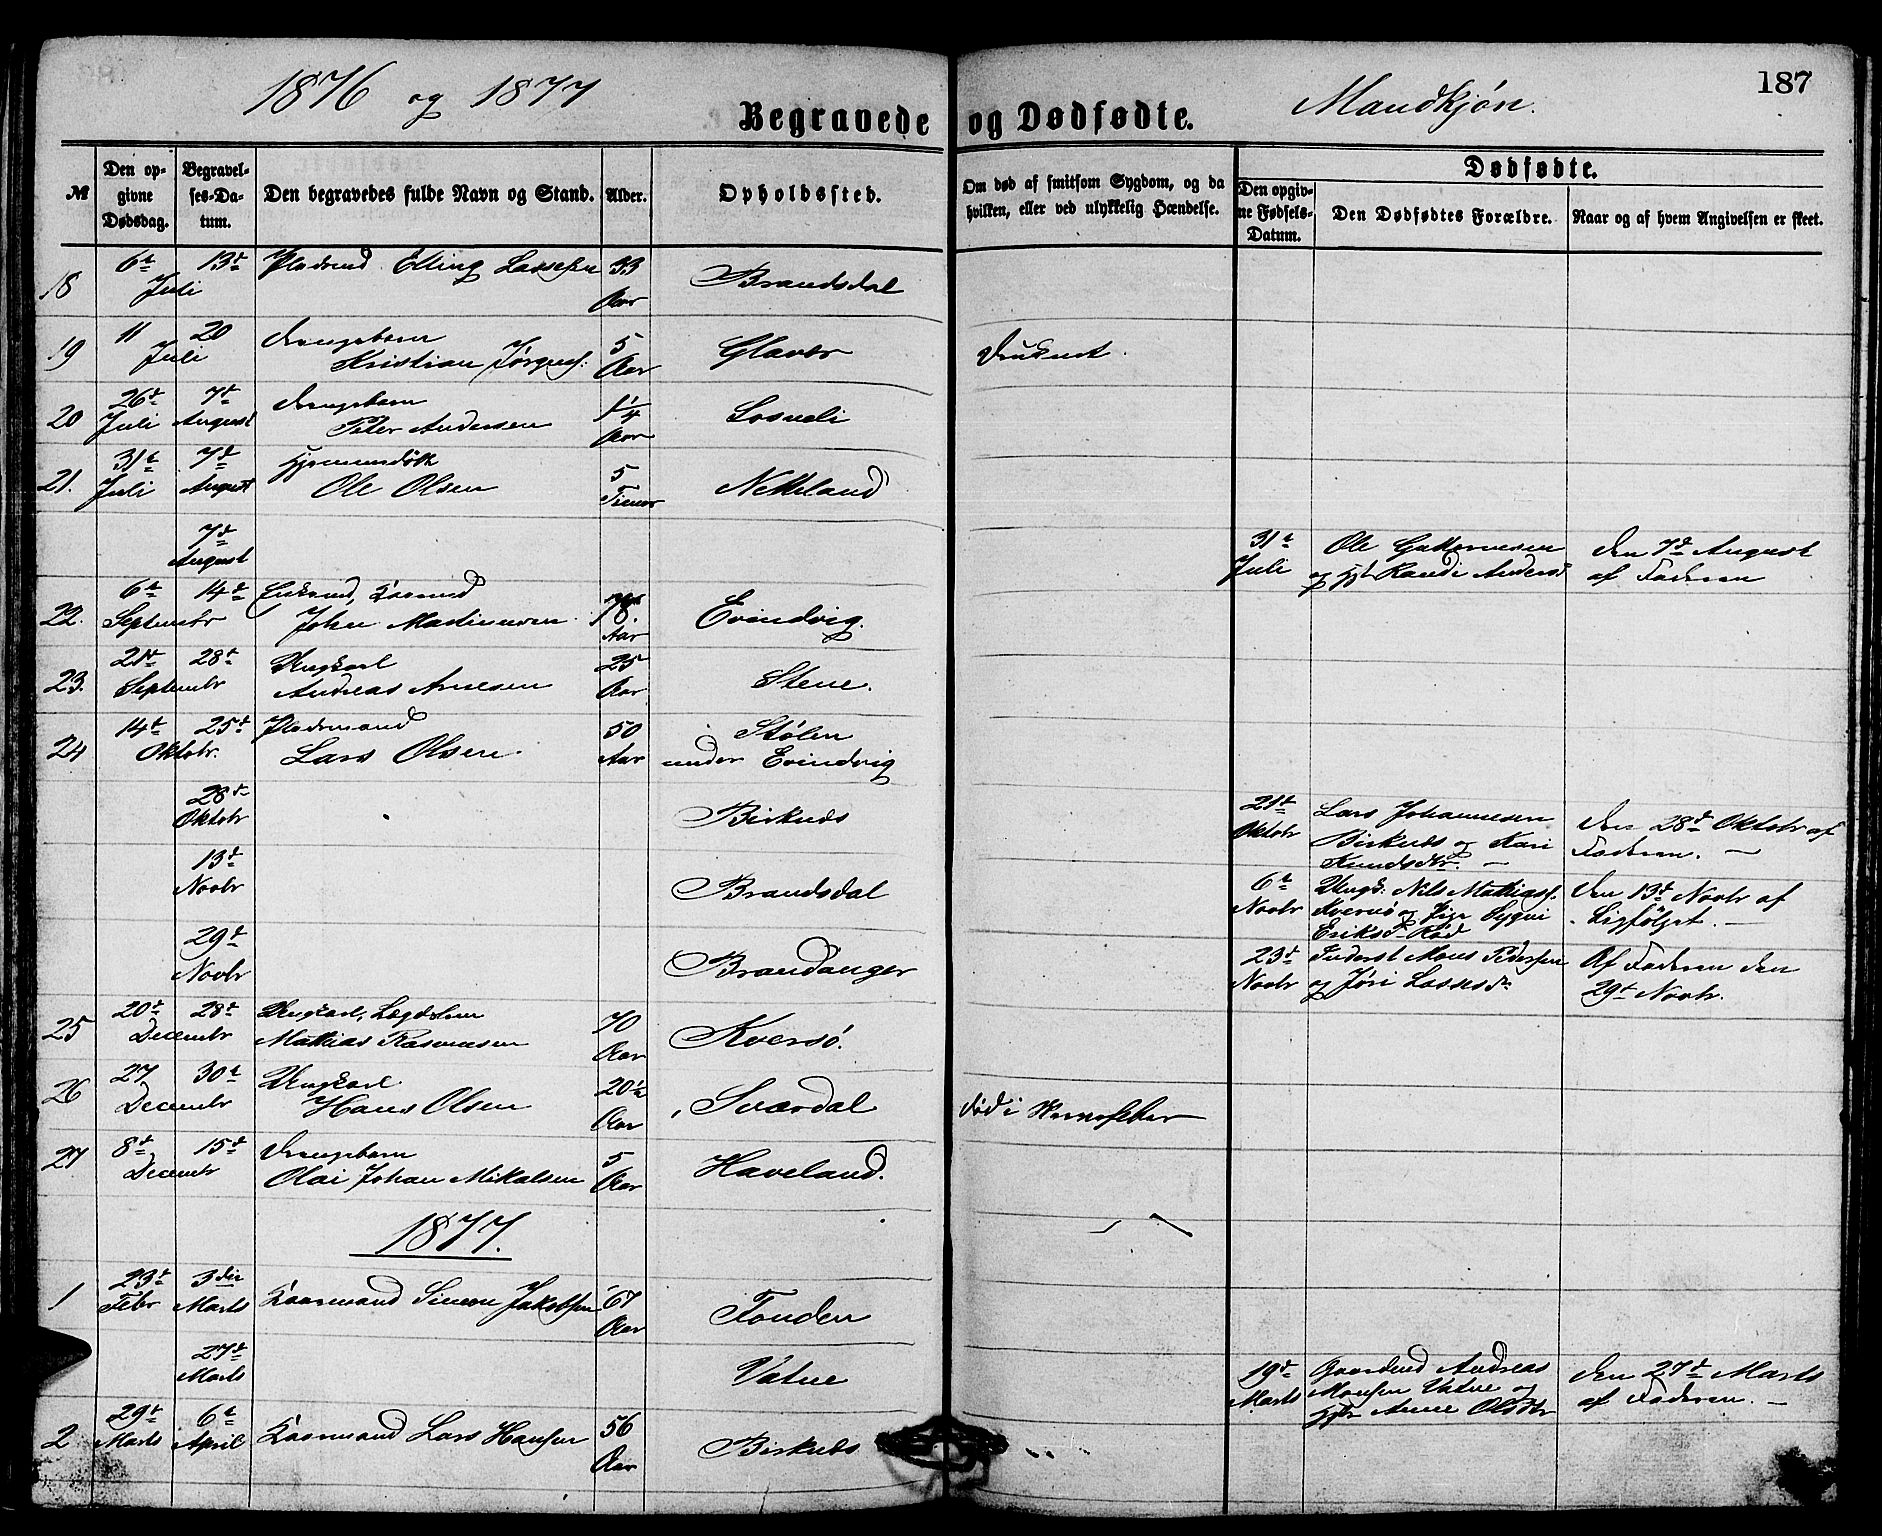 187
1876 og 1877
Mandkjøn.
Begravede og Dødfødte.
№
Den opgivne Dødsdag.
Begravelses-Datum.
Den begravedes fulde Navn og Stand.
Alder.
Opholdssted.
Om død af smitsom Sygdom, og da hvilken, eller ved ulykkelig Hændelse.
Dødfødte.
Den opgivne Fødsels-Datum.
Den Dødfødtes Forældre.
Naar og af hvem Angivelsen er skeet.
18 6te 13de Juli Pladsmd. Elling Lassesen 33 Aar Brandsdal
19 11 20 Juli Drengebarn
Kristian Jørgens: 5 Aar Glavær Druknet.
20 26de Juli 7de August Drengebarn
Peter Andersen 1¼ Aar Sosneli
21. 31te Juli 7de August Hjemmedøbt
Ole Olsen 5 Timer Netteland
7de August 31te Juli Ole Guttormsen
og Hst Randi Andersd Den 7de August
af Faderen
22. 6te 14de September Enkemd, Kaarmd
John Martinusen. 78. Aar Evindvig.
23. 21de 28de Septembr Ungkarl
Andreas Arnesen 25 Aar Stene.
24 14de 25de Oktobr. Pladsmand
Lars Olsen. 50 Aar Stølen
under Evindvig
28de Oktobr Birknes 21de Oktobr Lars Johannesen
Birknes og Kari
Knudsdtr. — Den 28de Oktobr af
Faderen. —
13de Novbr Brandsdal 6te Novbr Ungk: Nils Mathiass.
Kversø og Pige Sygni
Eriksd. Rød Den 13de Novbr af
Ligfølget. —
29de Novbr Brandanger 23de Novbr Inderst Mons Pedersen
og Jøri Lassesdr Af Faderen den
29de Novbr.
25 20de 28de Decembr Ungkarl, Lægdslem
Mathias Rasmusen 70 Aar Kversø.
26 27 30te Decembr Ungkarl
Hans Olsen 20½ Aar Sværdal død i Nervefeber
27 8de 15de Decembr Drengebarn
Olai Johan Mikalsen 5 Aar Haveland.
1877.
1 23de Febr 3die Marts Kaarmand Simon Jakobsen 67 Aar Fonden
27de Marts Vatne 19de Marts Gaardmd Andreas
Monsen Vatne og
Hstr Anne Olsdtr Den 27de Marts
af Faderen. —
2 29de Marts 6te April Kaarmand Lars Hansen 56 Aar Birknes